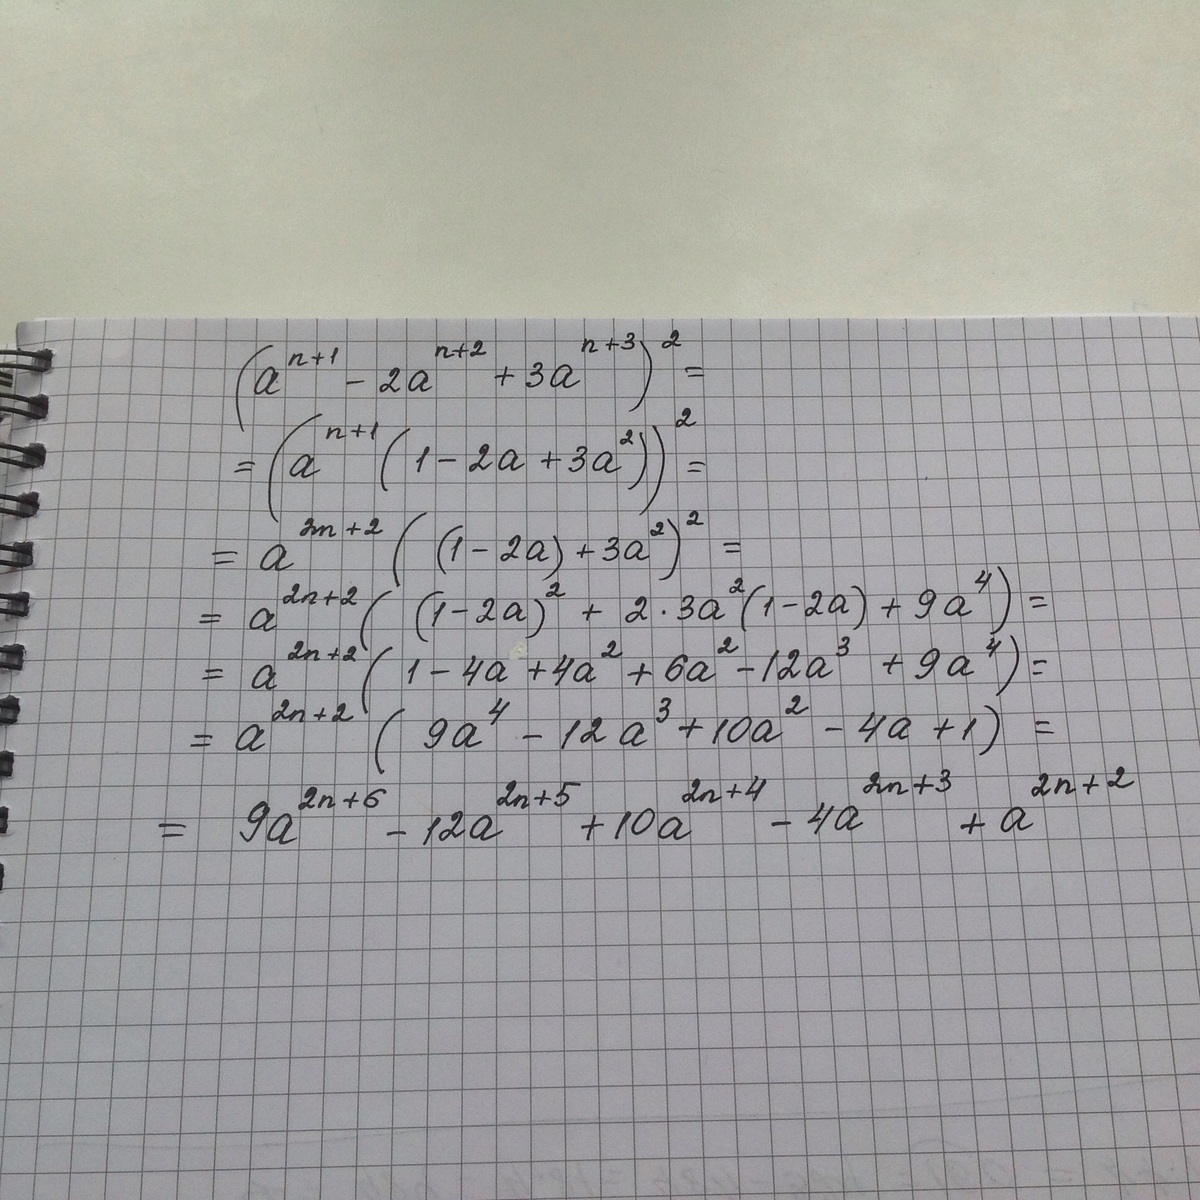 (a^{n+1} - 2a^{n+2} + 3a^{n+3})^2 =
= (a^{n+1} (1 - 2a + 3a^2))^2 =
= a^{2n+2} ((1 - 2a) + 3a^2)^2 =
= a^{2n+2} ((1-2a)^2 + 2 · 3a^2 (1-2a) + 9a^4) =
= a^{2n+2} (1 - 4a + 4a^2 + 6a^2 - 12a^3 + 9a^4) =
= a^{2n+2} (9a^4 - 12a^3 + 10a^2 - 4a + 1) =
= 9a^{2n+6} - 12a^{2n+5} + 10a^{2n+4} - 4a^{2n+3} + a^{2n+2}